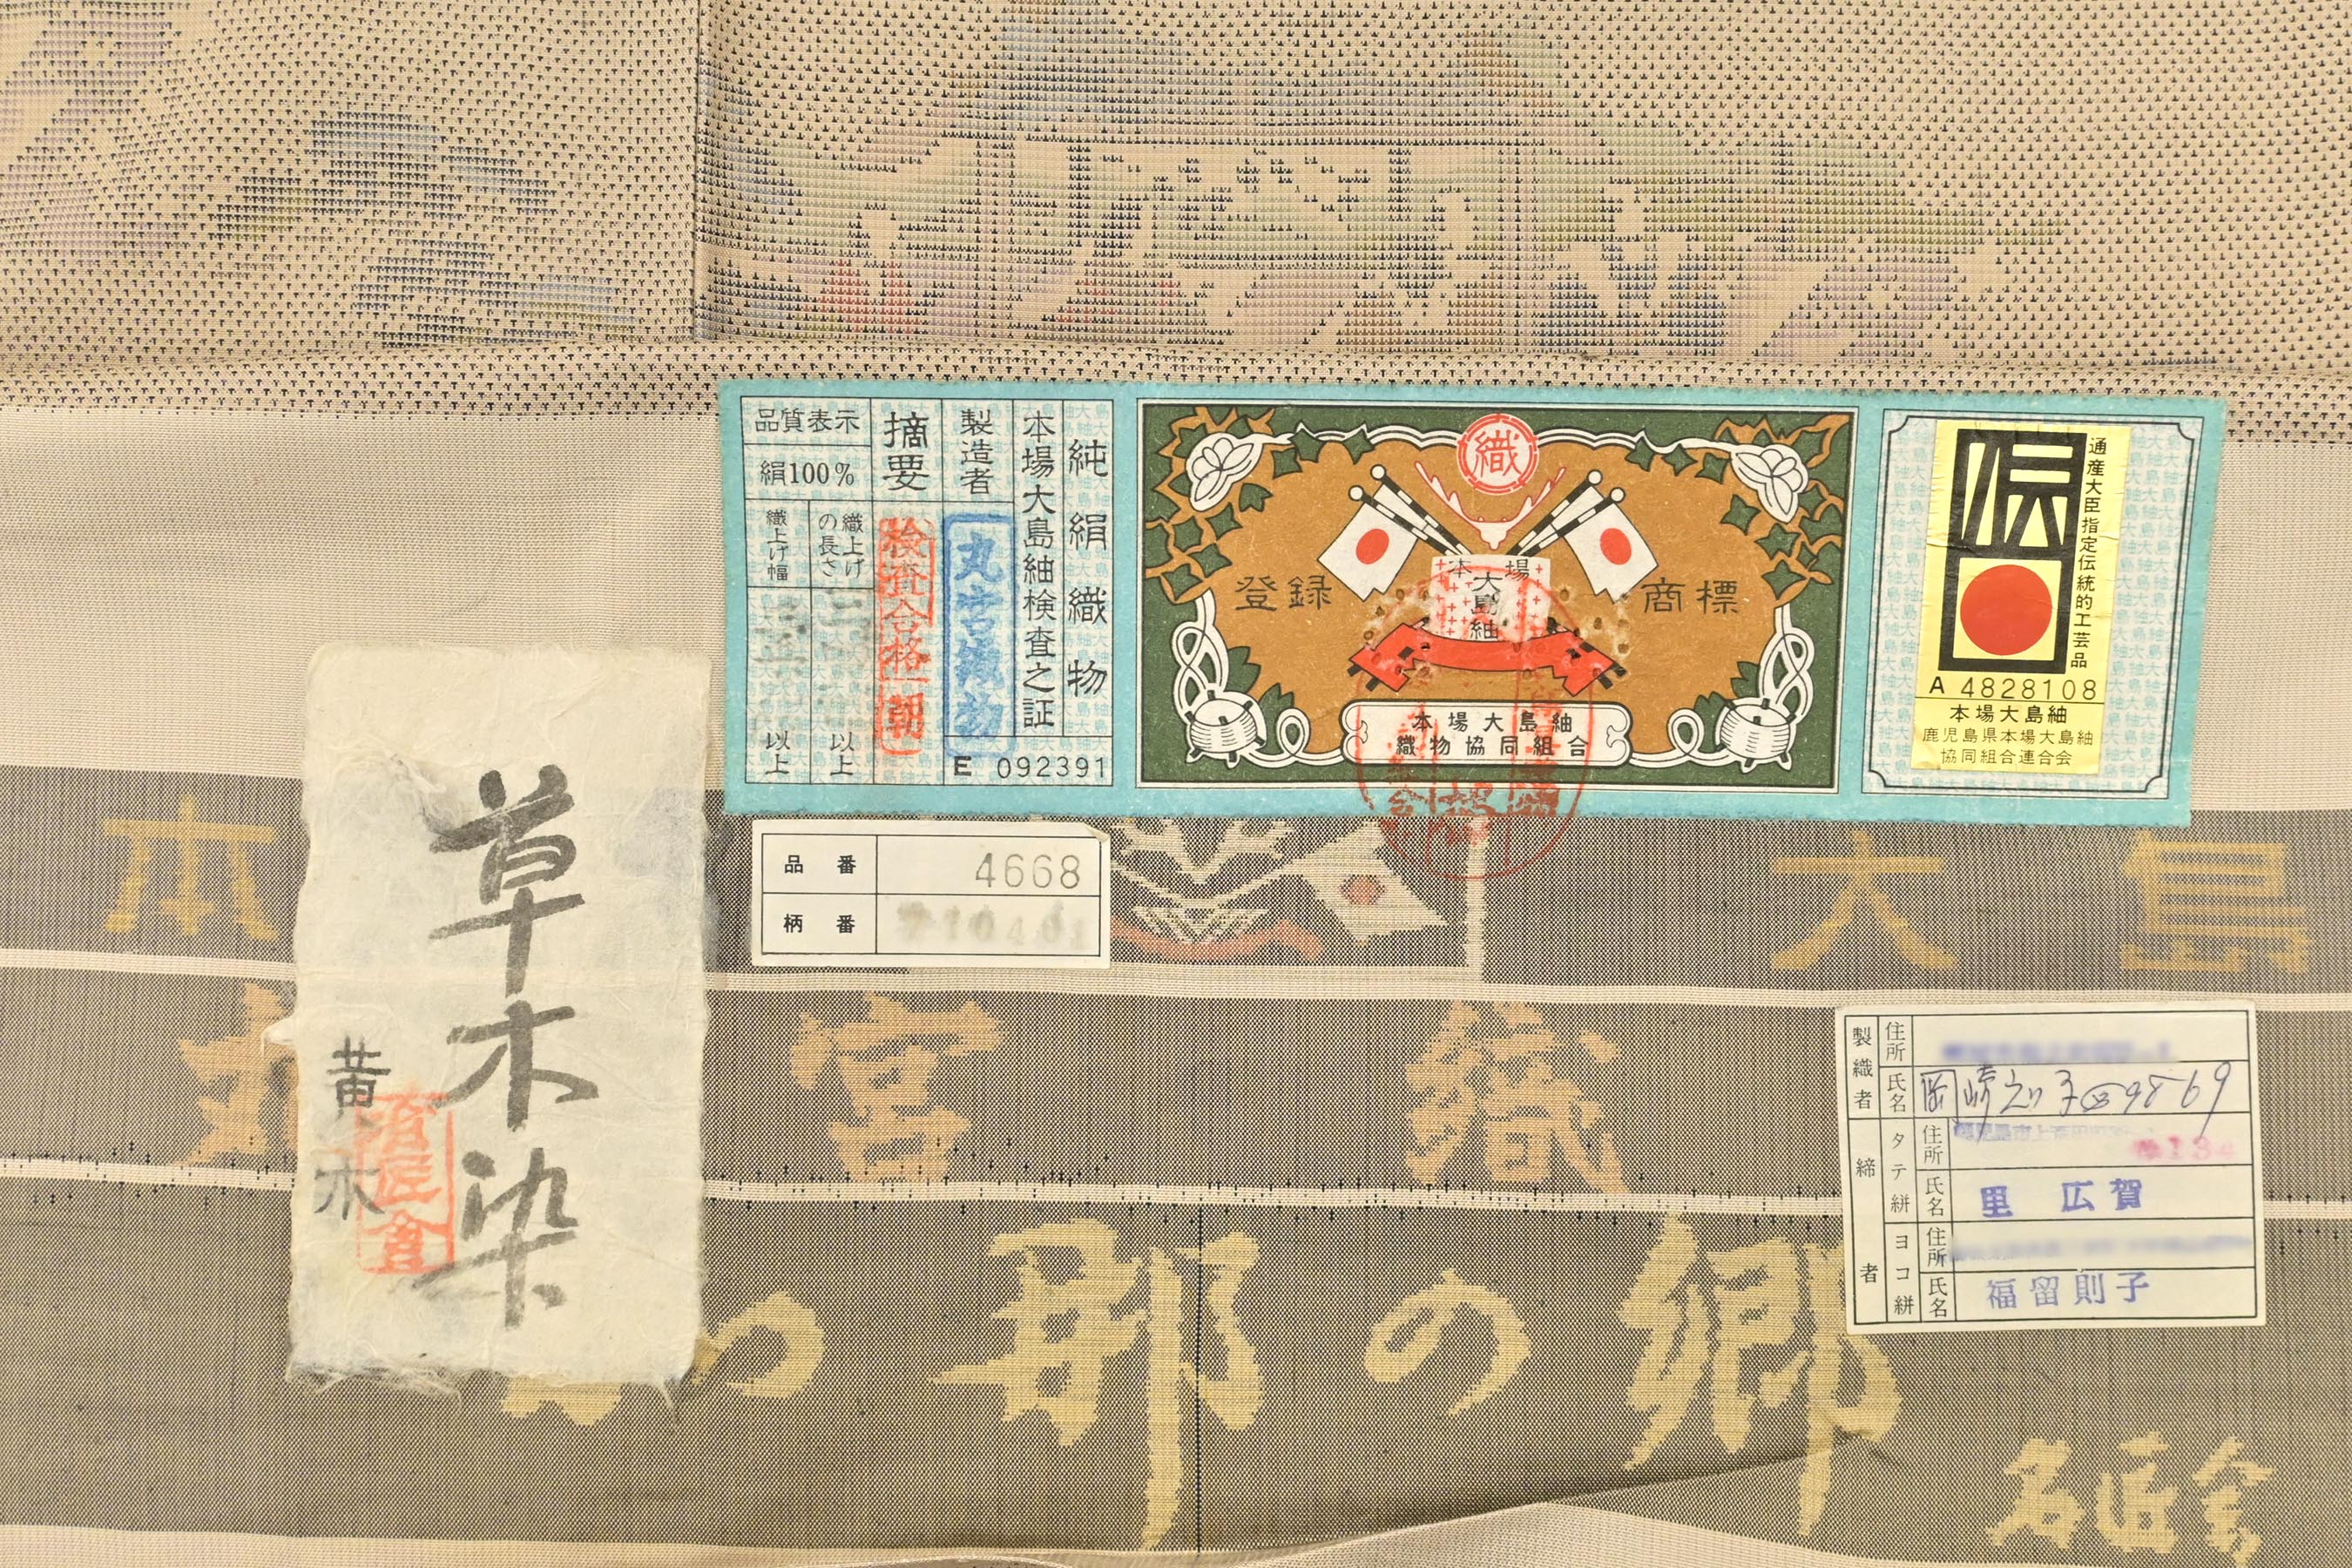 純絹織物
本場大島紬検査之証
製造者
丸宮織物
E 092391
摘要
検査合格 朝
品質表示
絹100%
織上げの長さ
以上
織上げ幅
以上
織
登録 商標
本場
大島紬
本場大島紬
織物協同組合
伝
通産大臣指定伝統的工芸品
A 4828108
本場大島紬
鹿児島県本場大島紬
協同組合連合会
品番 4668
柄番
草木染
黄
本 大島
宮織
の郡の郷
製織者
住所
氏名
締者
タテ絣
住所
氏名 里 広賀
ヨコ絣
住所
氏名 福留則子